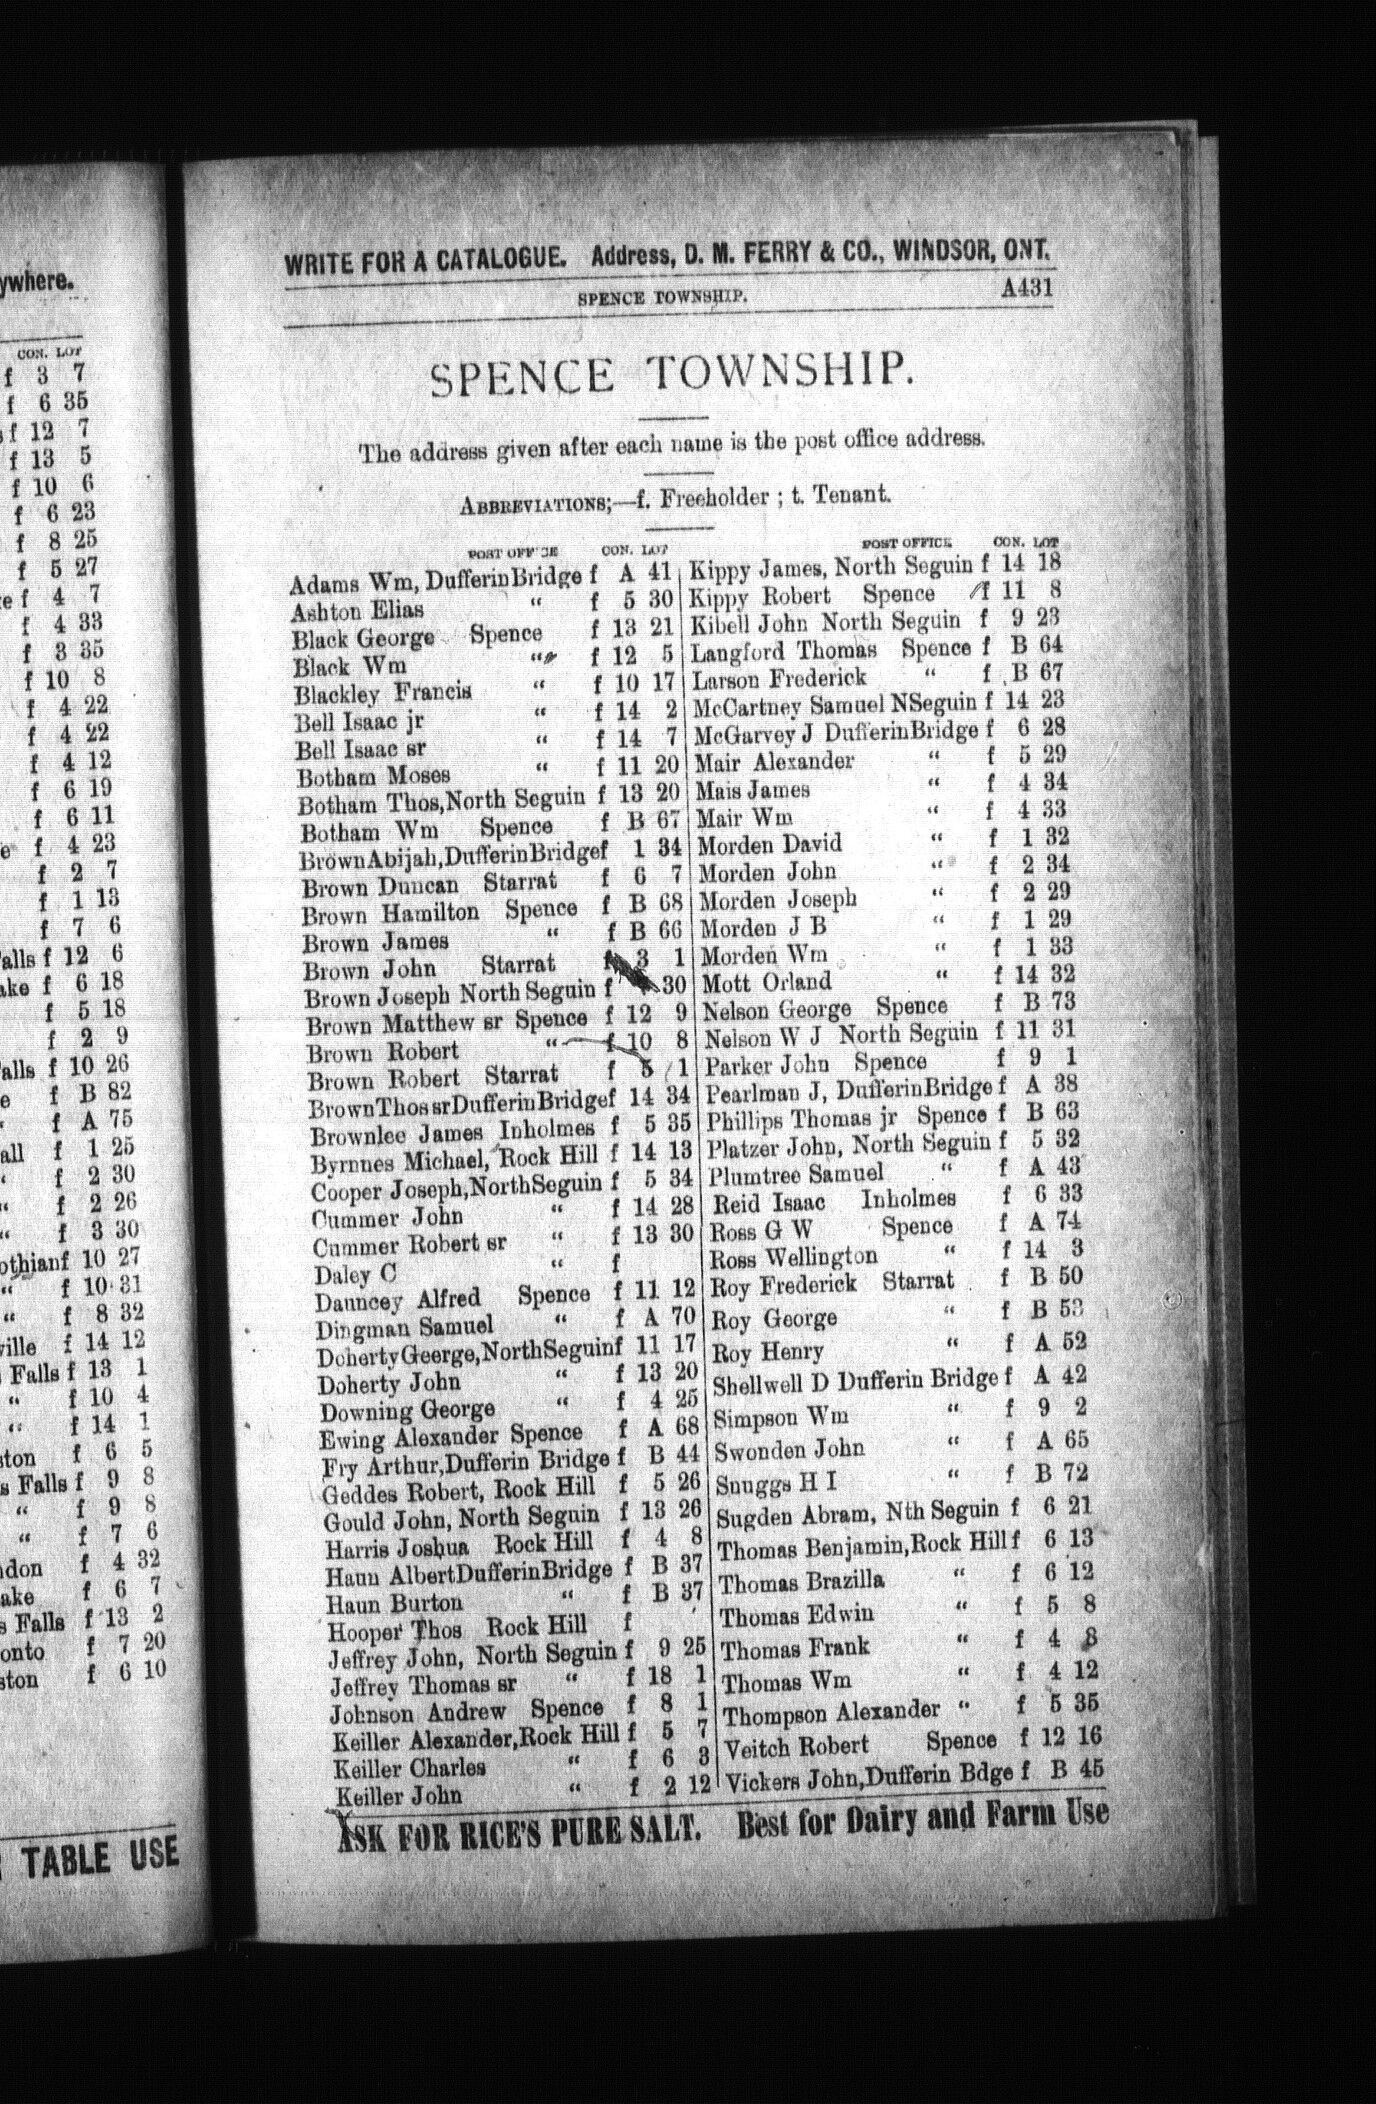 ywhere.
CON. LOT
f 3 7
f 6 35
f 12 7
f 13 5
f 10 6
f 6 23
f 8 25
f 5 27
e f 4 7
f 4 33
f 3 35
f 10 8
f 4 22
f 4 22
f 4 12
f 6 19
f 6 11
e f 4 23
f 2 7
f 1 13
f 7 6
alls f 12 6
ake f 6 18
f 5 18
f 2 9
alls f 10 26
e f B 82
f A 75
all f 1 25
f 2 30
“ f 2 26
“ f 3 30
othian f 10 27
“ f 10 31
“ f 8 32
ville f 14 12
Falls f 13 1
“ f 10 4
“ f 14 1
ston f 6 5
s Falls f 9 8
“ f 9 8
“ f 7 6
don f 4 32
ake f 6 7
s Falls f 13 2
onto f 7 20
ston f 6 10
TABLE USE
WRITE FOR A CATALOGUE. Address, D. M. FERRY & CO., WINDSOR, ONT.
SPENCE TOWNSHIP. A431
SPENCE TOWNSHIP.
The address given after each name is the post office address.
ABBREVIATIONS;—f. Freeholder ; t. Tenant.
POST OFFICE CON. LOT
Adams Wm, DufferinBridge f A 41
Ashton Elias “ f 5 30
Black George Spence f 13 21
Black Wm “ f 12 5
Blackley Francis “ f 10 17
Bell Isaac jr “ f 14 2
Bell Isaac sr “ f 14 7
Botham Moses “ f 11 20
Botham Thos,North Seguin f 13 20
Botham Wm Spence f B 67
BrownAbijah,DufferinBridgef 1 34
Brown Duncan Starrat f 6 7
Brown Hamilton Spence f B 68
Brown James “ f B 66
Brown John Starrat f 3 1
Brown Joseph North Seguin f 30
Brown Matthew sr Spence f 12 9
Brown Robert “ f 10 8
Brown Robert Starrat f 5 1
BrownThossrDufferinBridgef 14 34
Brownlee James Inholmes f 5 35
Byrnnes Michael, Rock Hill f 14 13
Cooper Joseph,NorthSeguin f 5 34
Cummer John “ f 14 28
Cummer Robert sr “ f 13 30
Daley C “ f
Dauncey Alfred Spence f 11 12
Dingman Samuel “ f A 70
DohertyGeerge,NorthSeguinf 11 17
Doherty John “ f 13 20
Downing George “ f 4 25
Ewing Alexander Spence f A 68
Fry Arthur,Dufferin Bridge f B 44
Geddes Robert, Rock Hill f 5 26
Gould John, North Seguin f 13 26
Harris Joshua Rock Hill f 4 8
Haun AlbertDufferinBridge f B 37
Haun Burton “ f B 37
Hooper Thos Rock Hill f
Jeffrey John, North Seguin f 9 25
Jeffrey Thomas sr “ f 18 1
Johnson Andrew Spence f 8 1
Keiller Alexander,Rock Hill f 5 7
Keiller Charles “ f 6 3
Keiller John “ f 2 12
POST OFFICE CON. LOT
Kippy James, North Seguin f 14 18
Kippy Robert Spence f 11 8
Kibell John North Seguin f 9 23
Langford Thomas Spence f B 64
Larson Frederick “ f B 67
McCartney Samuel NSeguin f 14 23
McGarvey J DufferinBridge f 6 28
Mair Alexander “ f 5 29
Mais James “ f 4 34
Mair Wm “ f 4 33
Morden David “ f 1 32
Morden John “ f 2 34
Morden Joseph “ f 2 29
Morden J B “ f 1 29
Morden Wm “ f 1 33
Mott Orland “ f 14 32
Nelson George Spence f B 73
Nelson W J North Seguin f 11 31
Parker John Spence f 9 1
Pearlman J, DufferinBridge f A 38
Phillips Thomas jr Spence f B 63
Platzer John, North Seguin f 5 32
Plumtree Samuel “ f A 43
Reid Isaac Inholmes f 6 33
Ross G W Spence f A 74
Ross Wellington “ f 14 3
Roy Frederick Starrat f B 50
Roy George “ f B 53
Roy Henry “ f A 52
Shellwell D Dufferin Bridge f A 42
Simpson Wm “ f 9 2
Swonden John “ f A 65
Snuggs H I “ f B 72
Sugden Abram, Nth Seguin f 6 21
Thomas Benjamin,Rock Hill f 6 13
Thomas Brazilla “ f 6 12
Thomas Edwin “ f 5 8
Thomas Frank “ f 4 8
Thomas Wm “ f 4 12
Thompson Alexander “ f 5 35
Veitch Robert Spence f 12 16
Vickers John,Dufferin Bdge f B 45
ASK FOR RICE'S PURE SALT. Best for Dairy and Farm Use